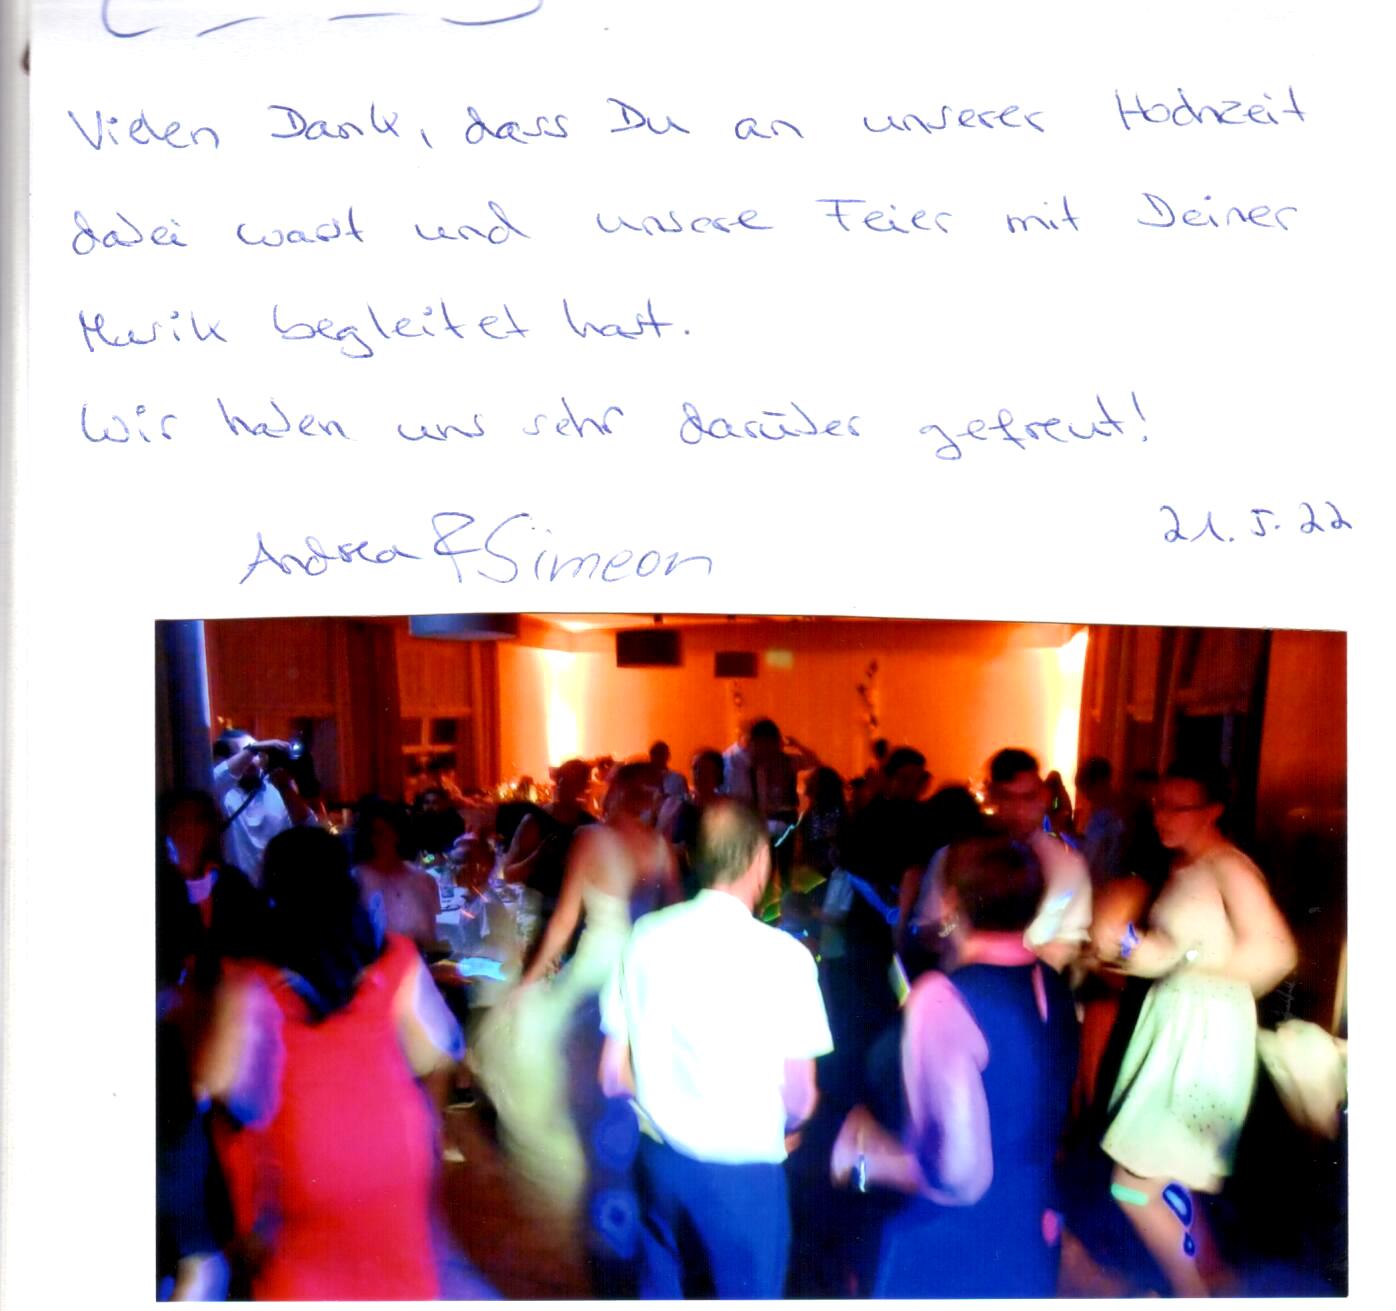 Vielen Dank, dass Du an unserer Hochzeit
dabei warst und unsere Feier mit Deiner
Musik begleitet hast.
Wir haben uns sehr darüber gefreut!
21.5.22
Andrea & Simeon